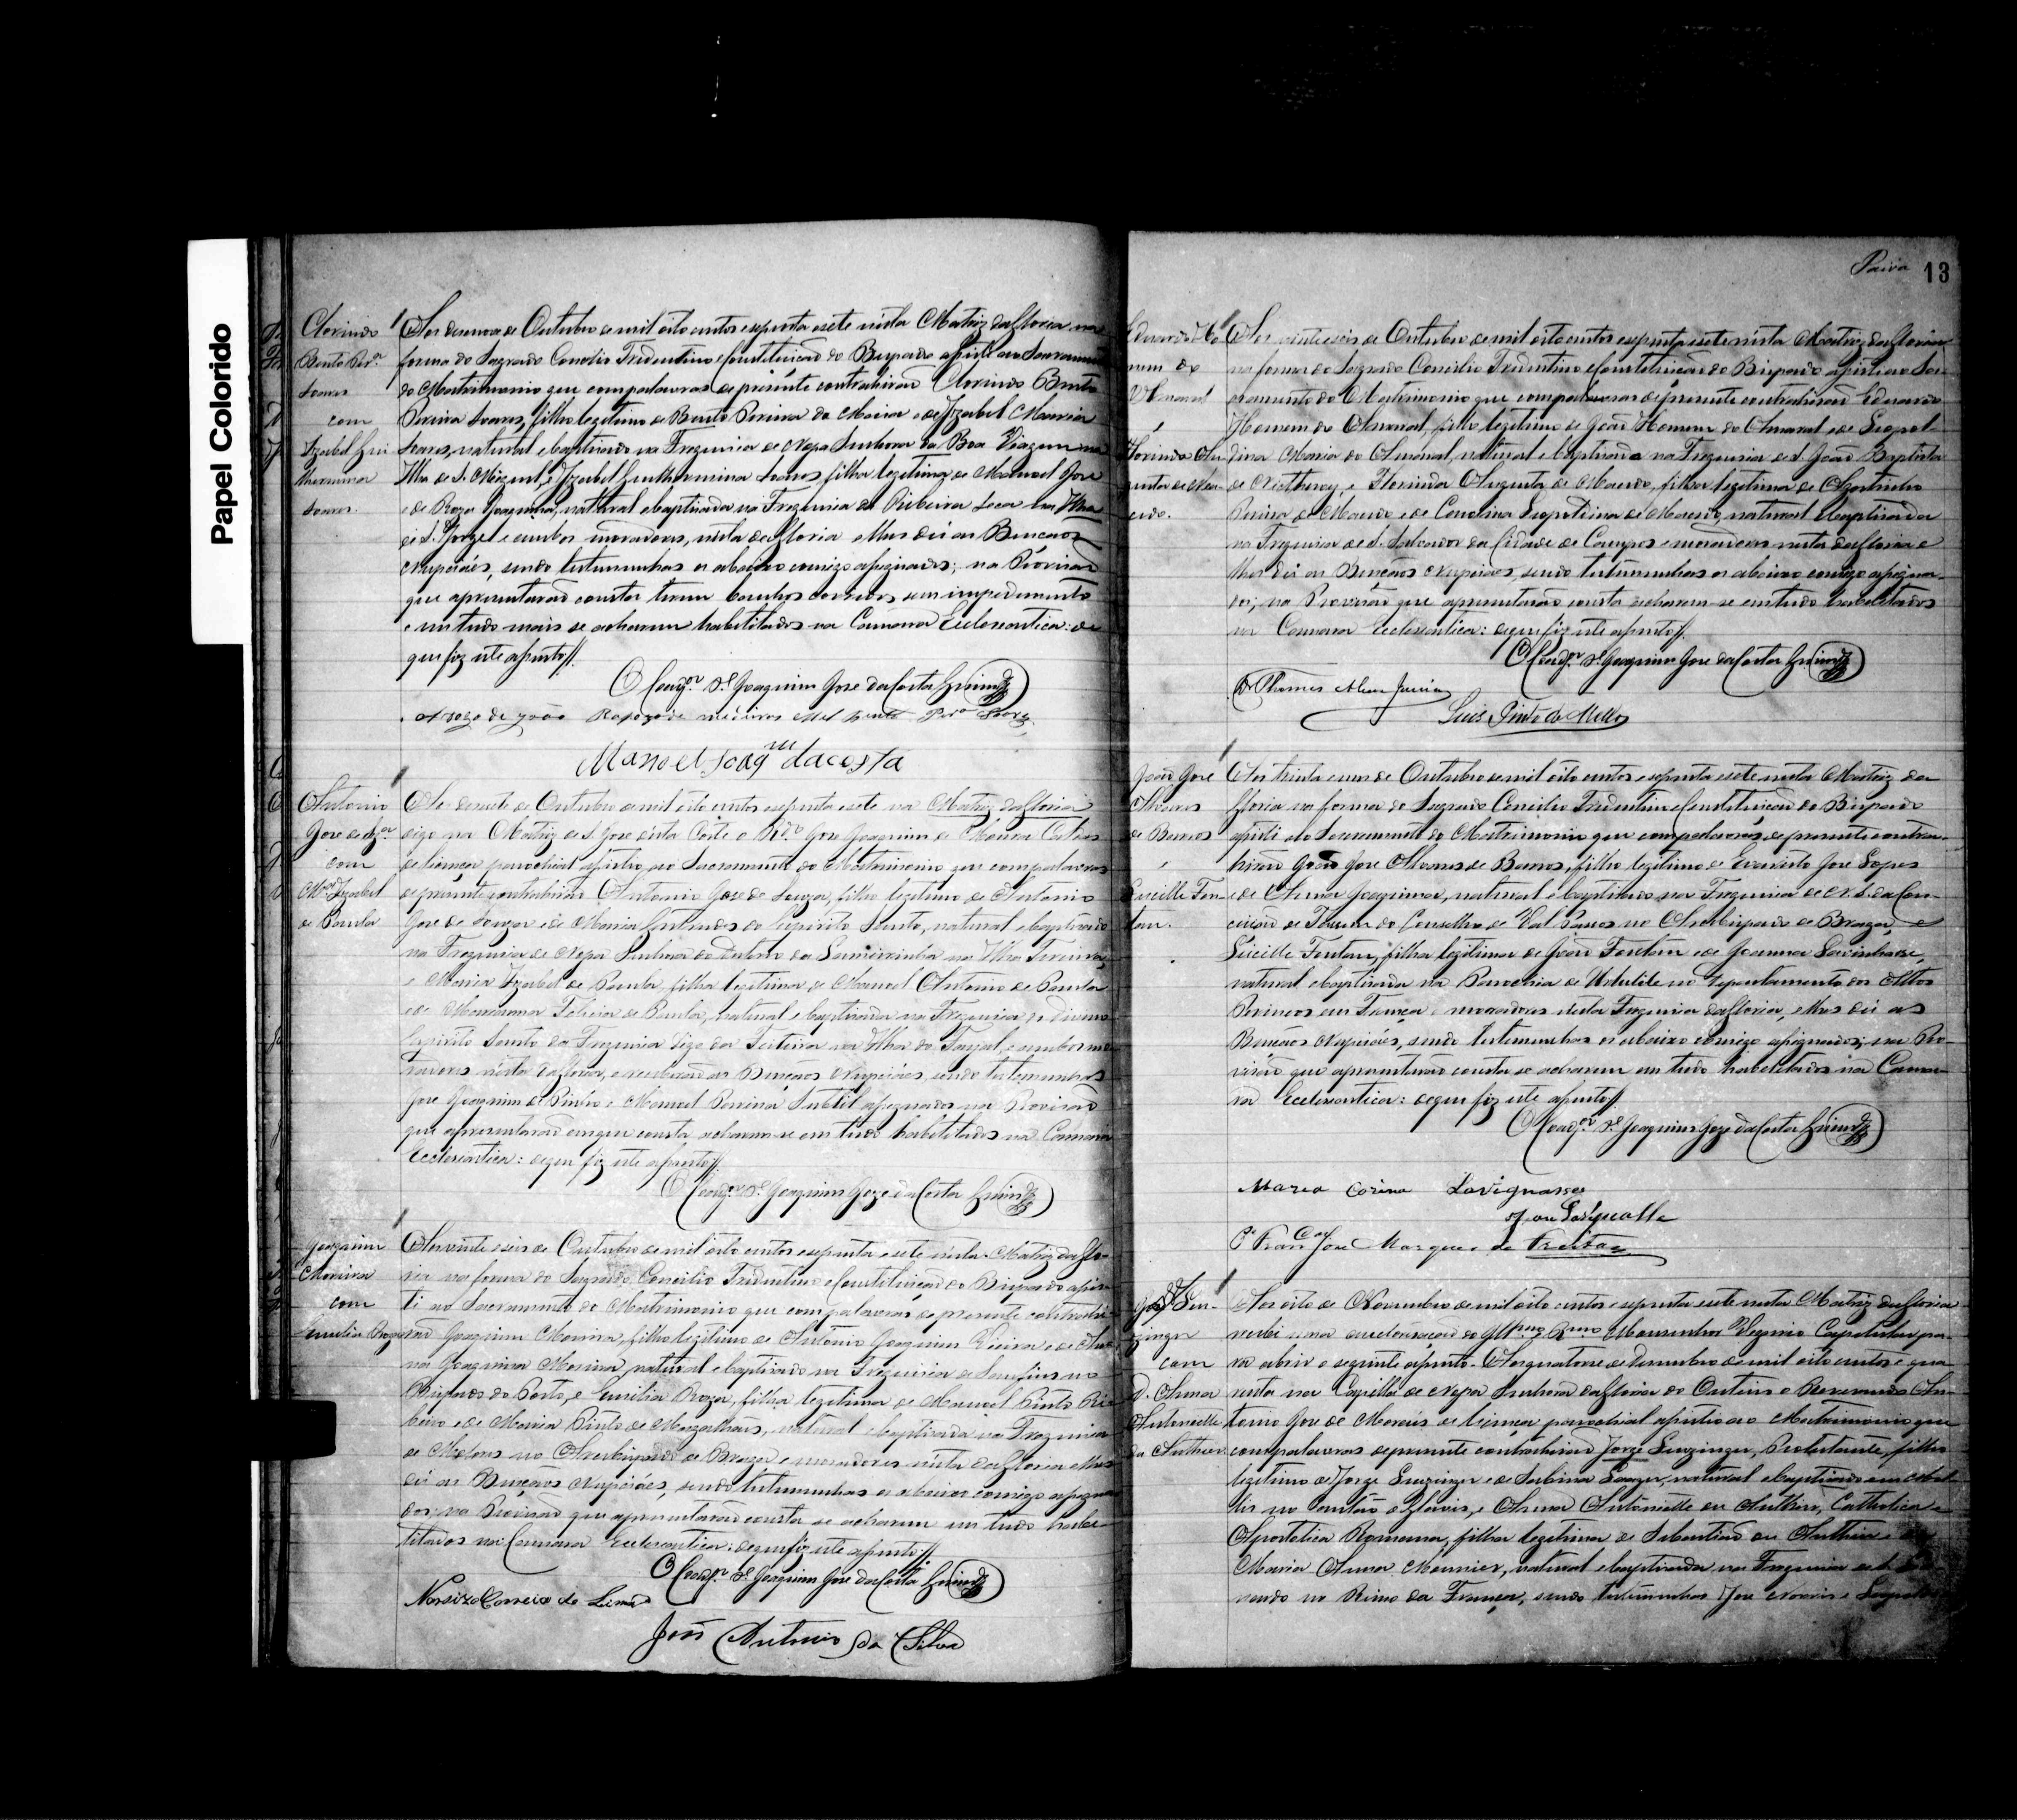 Papel Colorido
Clorindo
Bento Per.ª
Soares
com
Izabel Gui-
lhermina
Soares.
Aos dezenove de Outubro de mil oito centos e setenta e sete nesta Matriz da Gloria na
forma do Sagrado Concilio Tridentino e Constituição do Bispado assisti ao Sacramento
do Matrimonio que com palavras de presente contrahirão Clorindo Bento
Pereira Soares, filho legitimo de Bento Pereira de Maria e de Izabel Maria
Soares, natural e baptizado na Freguezia de Nossa Senhora da Boa Viagem na
Ilha de S. Miguel, e Izabel Guilhermina Soares filha legitima de Manoel José
e de Roza Joaquina, natural e baptizada na Freguezia da Ribeira Seca na Ilha
de S. Jorge e ambos moradores, nesta da Gloria e lhes dei as Bençaos
Nupciáes, sendo testemunhas os abaixo comigo assignados; na Provisão
que apresentarão consta terem banhos corridos sem impedimento
e em tudo mais se acharem habilitados na Camara Ecclesiastica: do
que fiz este assento.
O Coadj.or P.e Joaquim Jose da Costa Guim.es
A rogo de João Rapozo de Mel Bento Per.a Soares
Manoel Joaq.m da Costa
Antonio
Jose de Sz.a
com
M.a Izabel
de Paula
Aos dezesete de Outubro de mil oito centos e setenta e sete na Matriz da Gloria
digo na Matriz de S. Jose desta Corte o R.do Jose Joaquim de
de licença parochial assistio ao Sacramento do Matrimonio que com palavras
de presente contrahirão Antonio Jose de Souza, filho legitimo de Antonio
Jose de Souza e de Maria Gertrudes do Espirito Santo, natural e baptizado
na Freguezia de Nossa Senhora do da Serreirinha na Ilha Terceira,
e Maria Izabel de Paula, filha legitima de Manoel Antonio de Paula
e de Marianna Felicia de Paula, natural e baptizada na Freguezia do Divino
Espirito Santo da Freguezia digo da Feiteira na Ilha do Fayal, e ambos mo-
radores nesta da Gloria, e receberão as Bençaos Nupciáes, sendo testemunhas
Jose Joaquim de Pinho e Manoel Pereira Subtil assignados na Provisão
que apresentarão em que consta acharem-se em tudo habilitados na Camara
Ecclesiastica: de que fiz este assento.
O Coadj.or P.e Joaquim Joze da Costa Guim.es
Joaquim
Moreira
com
Emilia Roza
Aos vinte e seis de Outubro de mil oito centos e setenta e sete nesta Matriz da Glo-
ria na forma do Sagrado Concilio Tridentino e Constituição do Bispado assis-
ti ao Sacramento do Matrimonio que com palavras de presente contrahi-
rão Joaquim Moreira, filho legitimo de Antonio Joaquim Vieira e de An-
na Joaquina Moreira, natural e baptizado na Freguezia de no
Bispado do Porto, e Emilia Roza, filha legitima de Manoel Pinto Ri-
beiro e de Maria Pinto de Magalhães, natural e baptizada na Freguezia
de Mollares no Arcebispado de Braga e moradores nesta da Gloria e lhes
dei as Bençaos Nupciáes, sendo testemunhas os abaixo comigo assigna-
dos; na Provisão que apresentarão consta se acharem em tudo habi-
litados na Camara Ecclesiastica: de que fiz este assento.
O Coadj.or P.e Joaquim Jose da Costa Guim.es
Narsizo Correia de Lima
José Antonio da Silva
Paiva 13
Eduardo Ho-
mem do
Amaral
e
Florinda Au-
gusta de Ma-
cedo.
Aos vinte e seis de Outubro de mil oito centos e setenta e sete nesta Matriz da Gloria
na forma do Sagrado Concilio Tridentino e Constituição do Bispado assisti ao Sa-
cramento do Matrimonio que com palavras de presente contrahirão Eduardo
Homem do Amaral, filho legitimo de João Homem do Amaral e de Leopol-
dina Maria do Amaral, natural e baptizado na Freguezia de S. João Baptista
de Nictheroy, e Florinda Augusta de Macedo, filha legitima de Agostinho
Pereira de Macedo e de Carolina Leopoldina de Macedo, natural e baptizada
na Freguezia de S. Salvador da Cidade de Campos e moradores nesta da Gloria e
lhes dei as Bençaos Nupciáes, sendo testemunhas os abaixo comigo assigna-
dos; na Provisão que apresentarão consta acharem-se em tudo habilitados
na Camara Ecclesiastica: de que fiz este assento.
O Coadj.or P.e Joaquim Jose da Costa Guim.es
Dr Thomas Alves Junior
Luis Pinto de Mello
João Jose
Alvares
de Barros
e
Lucille Fon-
tan.
Aos trinta e um de Outubro de mil oito centos e setenta e sete nesta Matriz da
Gloria na forma do Sagrado Concilio Tridentino e Constituição do Bispado
assisti ao Sacramento do Matrimonio que com palavras de presente contra-
hirão João Jose Alvares de Barros, filho legitimo de Evaristo Jose Lopes
e de Anna Joaquina, natural e baptizado na Freguezia de N. S. da Con-
ceição de do Conselho de Val Passos no Arcebispado de Braga, e
Lucille Fontan, filha legitima de João Fontan e de Joanna
natural e baptizada na Parochia de no Departamento dos Altos
Pirineos em França e moradores nesta Freguezia da Gloria, e lhes dei as
Bençaos Nupciáes, sendo testemunhas os abaixo comigo assignados; na Pro-
visão que apresentarão consta se acharem em tudo habilitados na Cama-
ra Ecclesiastica: de que fiz este assento.
O Coadj.or P.e Joaquim Joze da Costa Guim.es
Maria Corina Lavignasse
P.e Fran.co Jose Marques de Freitas
Jorge Leu-
zinger
com
D. Anna
Antoniette
du Authier.
Aos oito de Novembro de mil oito centos e setenta e sete nesta Matriz da Gloria
recebi uma authorisação do Ill.mo e R.mo Monsenhor Vigario Capitular pa-
ra abrir o seguinte assento. Aos quatorze de Dezembro de mil oito centos e qua-
renta na Capella de Nossa Senhora da Gloria do Outeiro o Reverendo An-
tonio Jose de Moraes de licença parochial assistio ao Matrimonio que
com palavras de presente contrahirão Jorge Leuzinger, Protestante, filho
legitimo de Jorge Leuzinger e de Sabina natural e baptizado em Mol-
lis no cantão de Glaris, e Anna Antoniette du Authier, Catholica e
Apostolica Romana, filha legitima de Sebastião du Authier e de
Maria Anna Meunier, natural e baptizada na Freguezia de
no Reino da França, sendo testemunhas Jose e